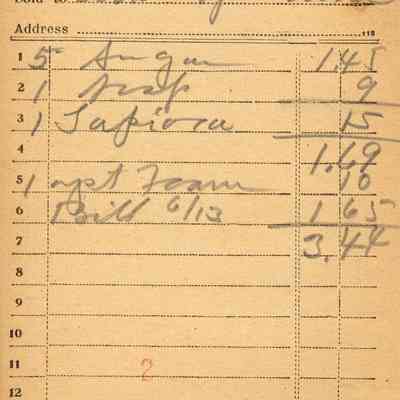 Sold to
Address 118
1 5 Sugar 1.45
2 1 Soap 9
3 1 Tapioca 15
4 1.69
5 1 Foam 10
6 Bill 6/13 1 65
7 3.44
8
9
10
11 2
12